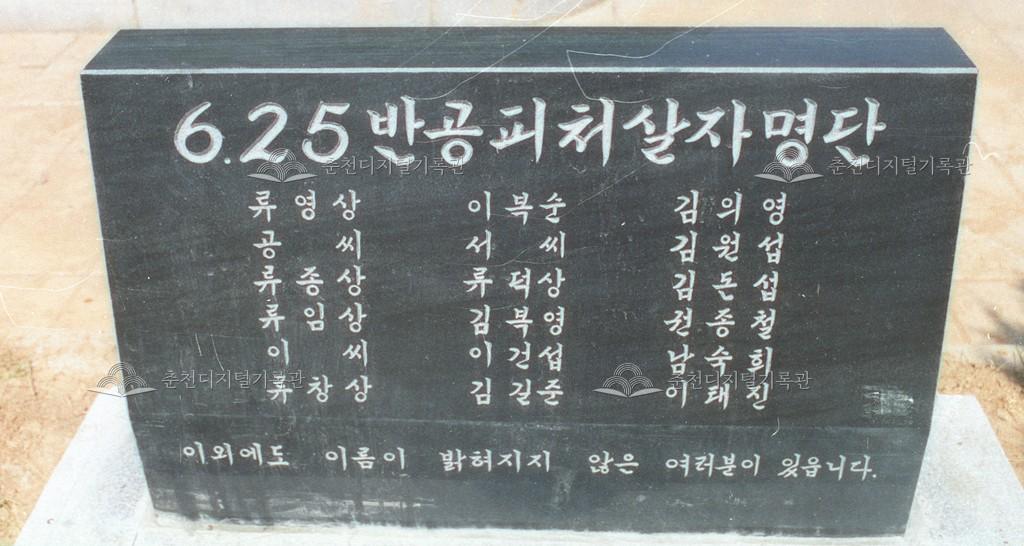 6.25 반공피처살자명단
류영상 이복순 김의영
공씨 서씨 김원섭
류종상 류덕상 김돈섭
류임상 김복영 전종철
이씨 이건섭 남숙희
류창상 김길준 이태진
이외에도 이름이 밝혀지지 않은 여러분이 있읍니다.
춘천디지털기록관
춘천디지털기록관
춘천디지털기록관
춘천디지털기록관